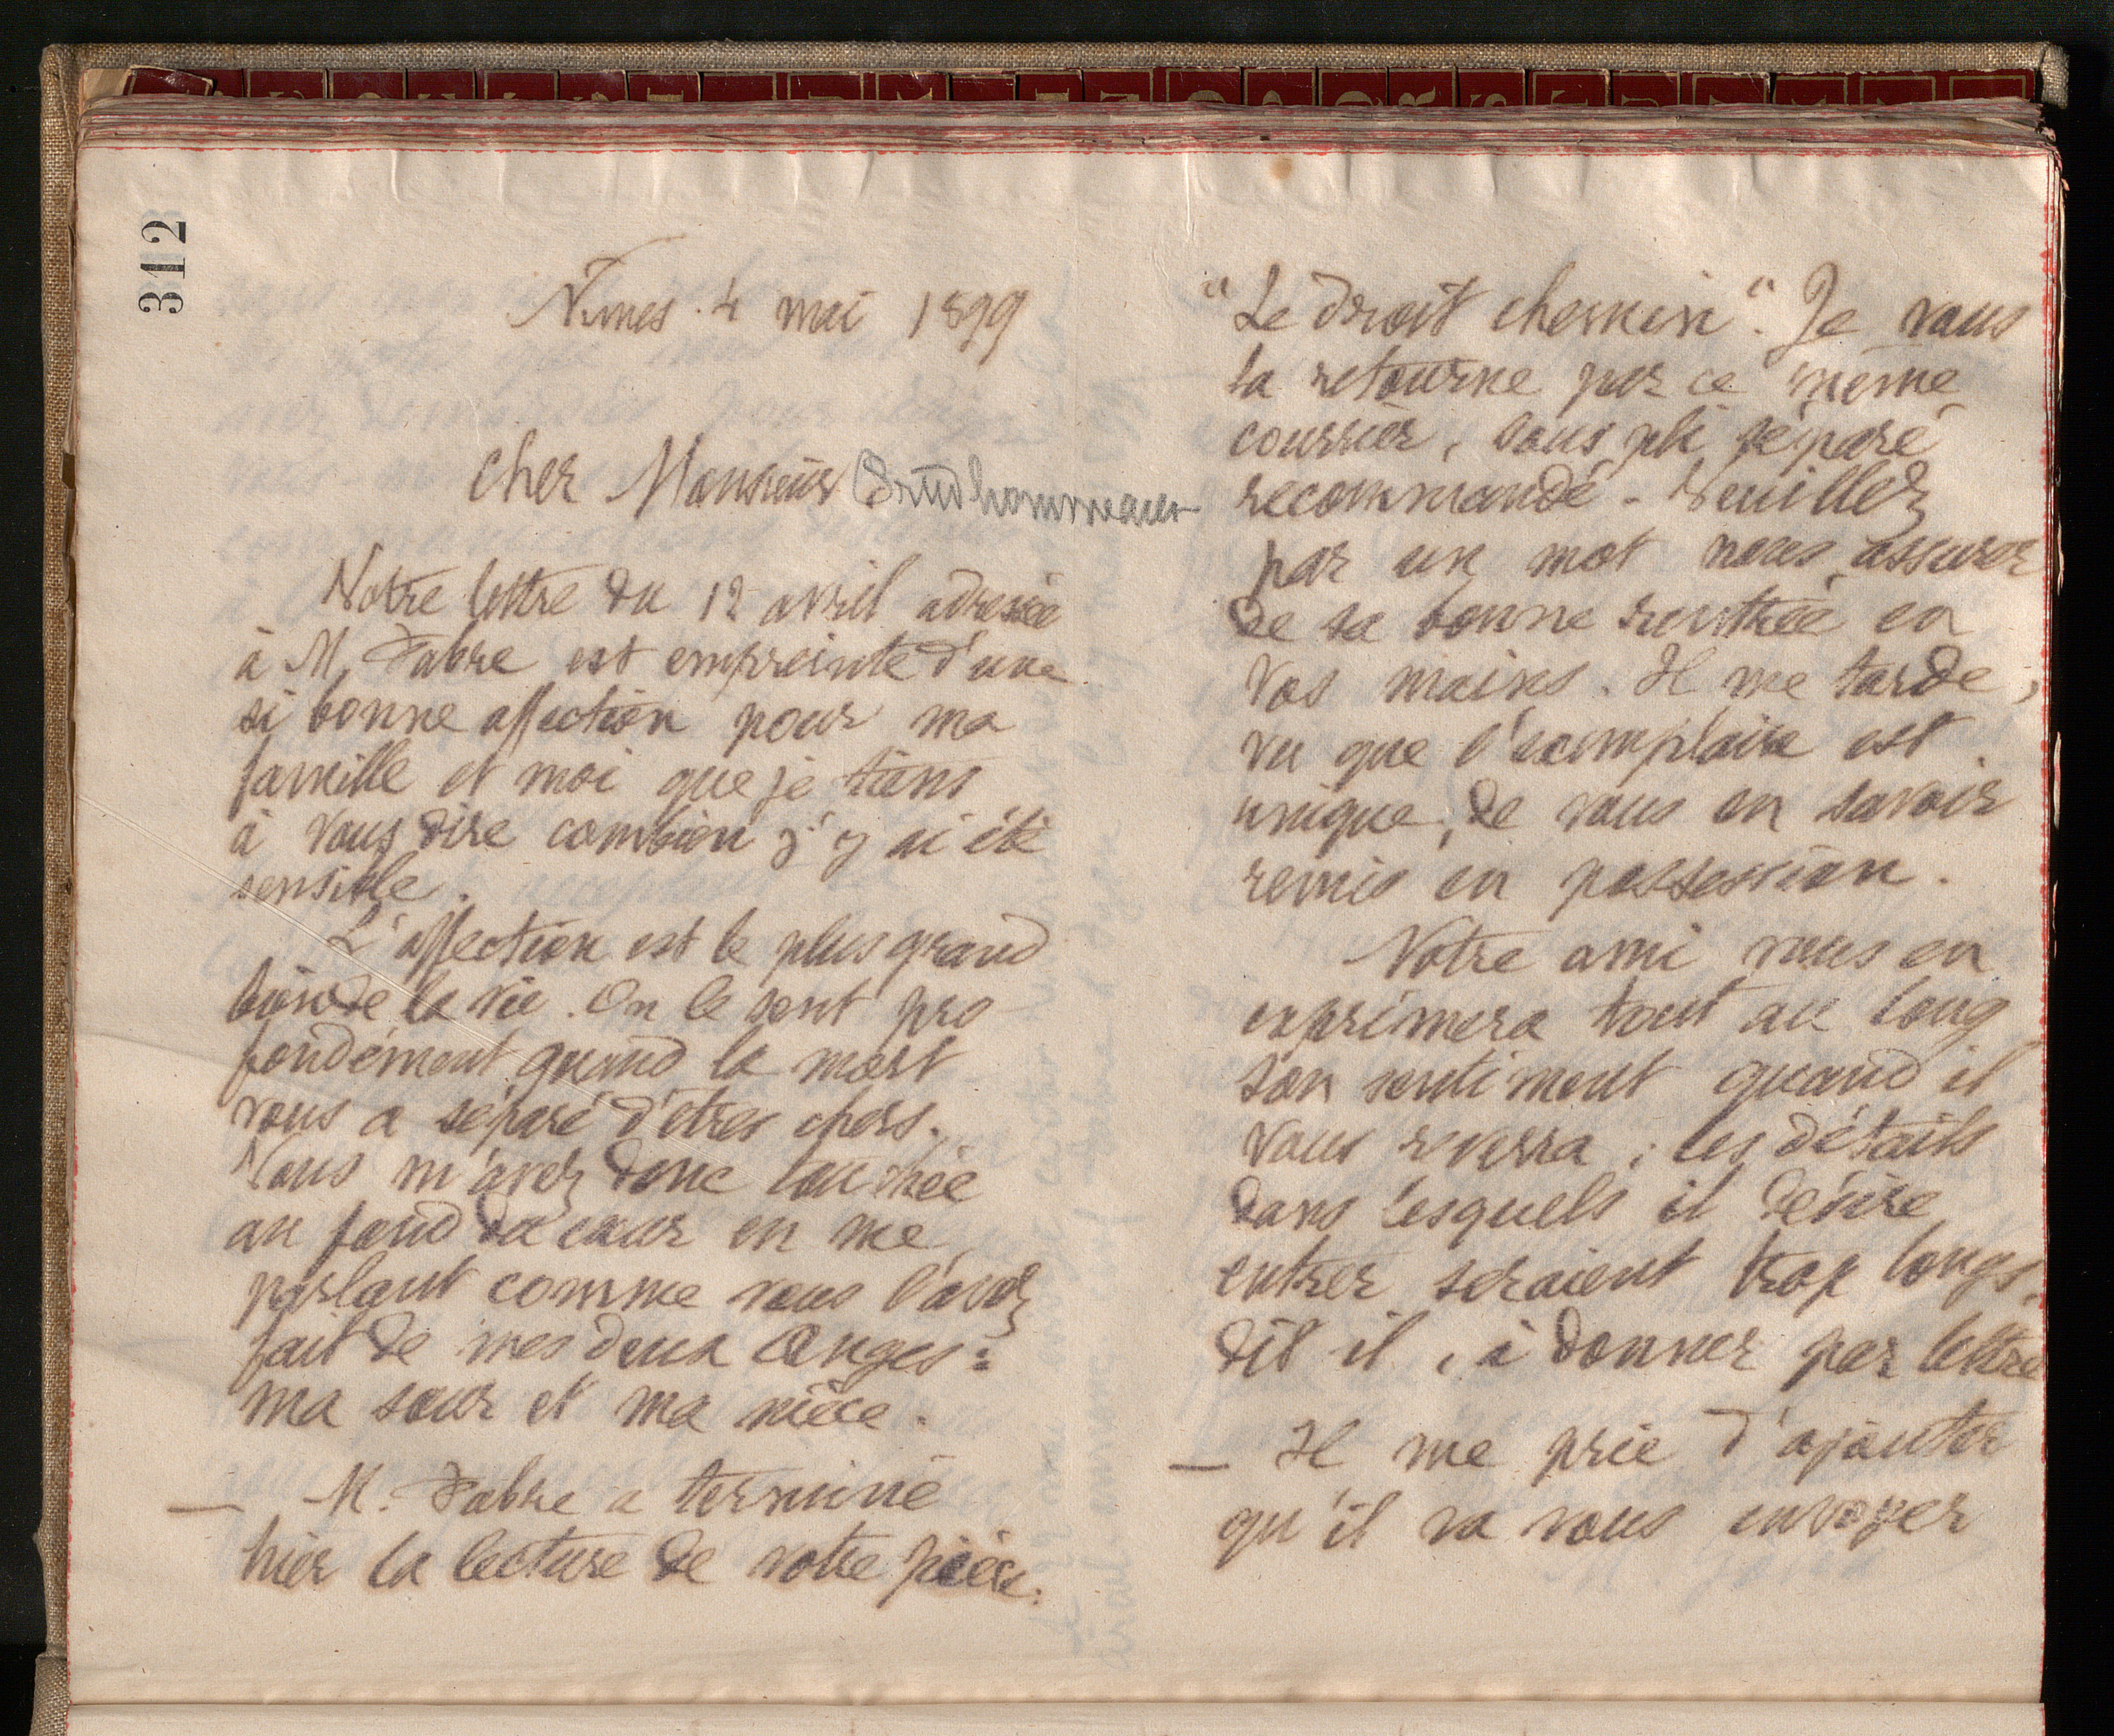 312
Nimes. 4 mai 1899
Cher Monsieur Prudhommeaux
Votre lettre du 12 avril adressée
à M. Fabre est empreinte d'une
si bonne affection pour ma
famille et moi que je tiens
à vous dire combien j'y ai été
sensible.
L'affection est le plus grand
bien de la vie. On le sent pro
fondément quand la mort
vous a séparé d'êtres chers.
Vous m'avez donc touchée
au fond du cœur en me
parlant comme vous l'avez
fait de mes deux Anges :
ma sœur et ma nièce.
— M. Fabre a terminé
hier la lecture de votre pièce.
"Le droit chemin". Je vous
la retourne par ce même
courrier, sous pli séparé
recommandé - Veuillez
par un mot nous assurer
de sa bonne rentrée en
vos mains. Il me tarde,
vu que l'exemplaire est
unique, de vous en savoir
remis en possession.
Notre ami vous en
exprimera tout au long
son sentiment quand il
vous reverra ; les détails
dans lesquels il désire
entrer seraient trop longs,
dit il, à donner par lettre
— Il me prie d'ajouter
qu'il va vous envoyer